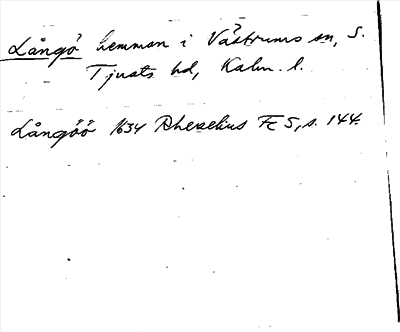 Långö hemman i Västrums sn, S.
Tjusts hd, Kalm. l.
Långöö 1634 Rhezelius FE 5, s. 144.